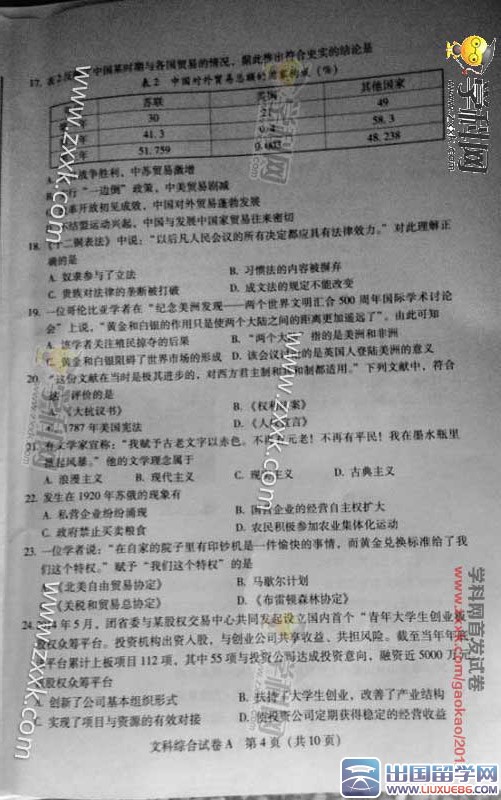 17. 中国某时期与各国贸易的情况，据此推出符合史实的结论是
表 2 中国对外贸易总额的 构成（%）
苏联 英国 其他国家
年 30 49
年 41.3 0.4 58.3
年 51.759 48.238
战争胜利，中苏贸易激增
行“一边倒”政策，中美贸易剧减
革开放初见成效，中国对外贸易蓬勃发展
不结盟运动兴起，中国与发展中国家贸易往来密切
18. 《十二铜表法》中说：“以后凡人民会议的所有决定都应具有法律效力。”对此理解正
确的是
A. 奴隶参与了立法 B. 习惯法的内容被摒弃
C. 贵族对法律的垄断被打破 D. 成文法的规定不能改变
19. 一位哥伦比亚学者在“纪念美洲发现——两个世界文明汇合 500 周年国际学术讨论
会”上说，“黄金和白银的作用只是使两个大陆之间的距离更加遥远了”。由此可知
A. 该学者关注殖民掠夺的后果 B. “两个大 指的是美洲和非洲
C. 黄金和白银阻碍了世界市场的形成 D. 该会议 的是英国人登陆美洲的意义
20. “这份文献在当时是极其进步的，对西方君主制和 和制都适用。”下列文献中，符合
评价的是
A. 《大抗议书》 B. 《权利 案》
1787 年美国宪法 D. 《人 言》
21. 有文学家宣称：“我赋予古老文字以赤色。不再 元老！不再有平民！我在墨水瓶里
起风暴。”他的文学理念属于
A. 浪漫主义 B. 现代主义 C. 主义 D. 古典主义
22. 发生在 1920 年苏俄的现象有
A. 私营企业纷纷涌现 B. 国 企业的经营自主权扩大
C. 政府禁止买卖粮食 D. 农民积极参加农业集体化运动
23. 一位学者说：“在自家的院子里有印钞机是一件愉快的事情，而黄金兑换标准给了我
们这个特权。”赋予“我们这个特权”的是
《北美自由贸易协定》 B. 马歇尔计划
《关税和贸易总协定》 D. 《布雷顿森林协定》
24. 年 5 月，团省委与某股权交易中心共同发起设立国内首个“青年大学生创业板
股权众筹平台。投资机构出资人股，与创业公司共享收益、共担风险。截至当年年
平台累计上板项目 112 项，其中 55 项与投资公司达成投资意向，融资近 5000 万
股权众筹平台
A. 创新了公司基本组织形式 B. 扶持了大学生创业，改善了产业结构
C. 实现了项目与资源的有效对接 D. 使投资公司定期获得稳定的经营收益
文科综合试卷 A 第 4 页（共 10 页）
学科网
www.zxxk.com
www.zxxk.com
学科网首发试卷
出国留学网
WWW.LIUXUE86.COM